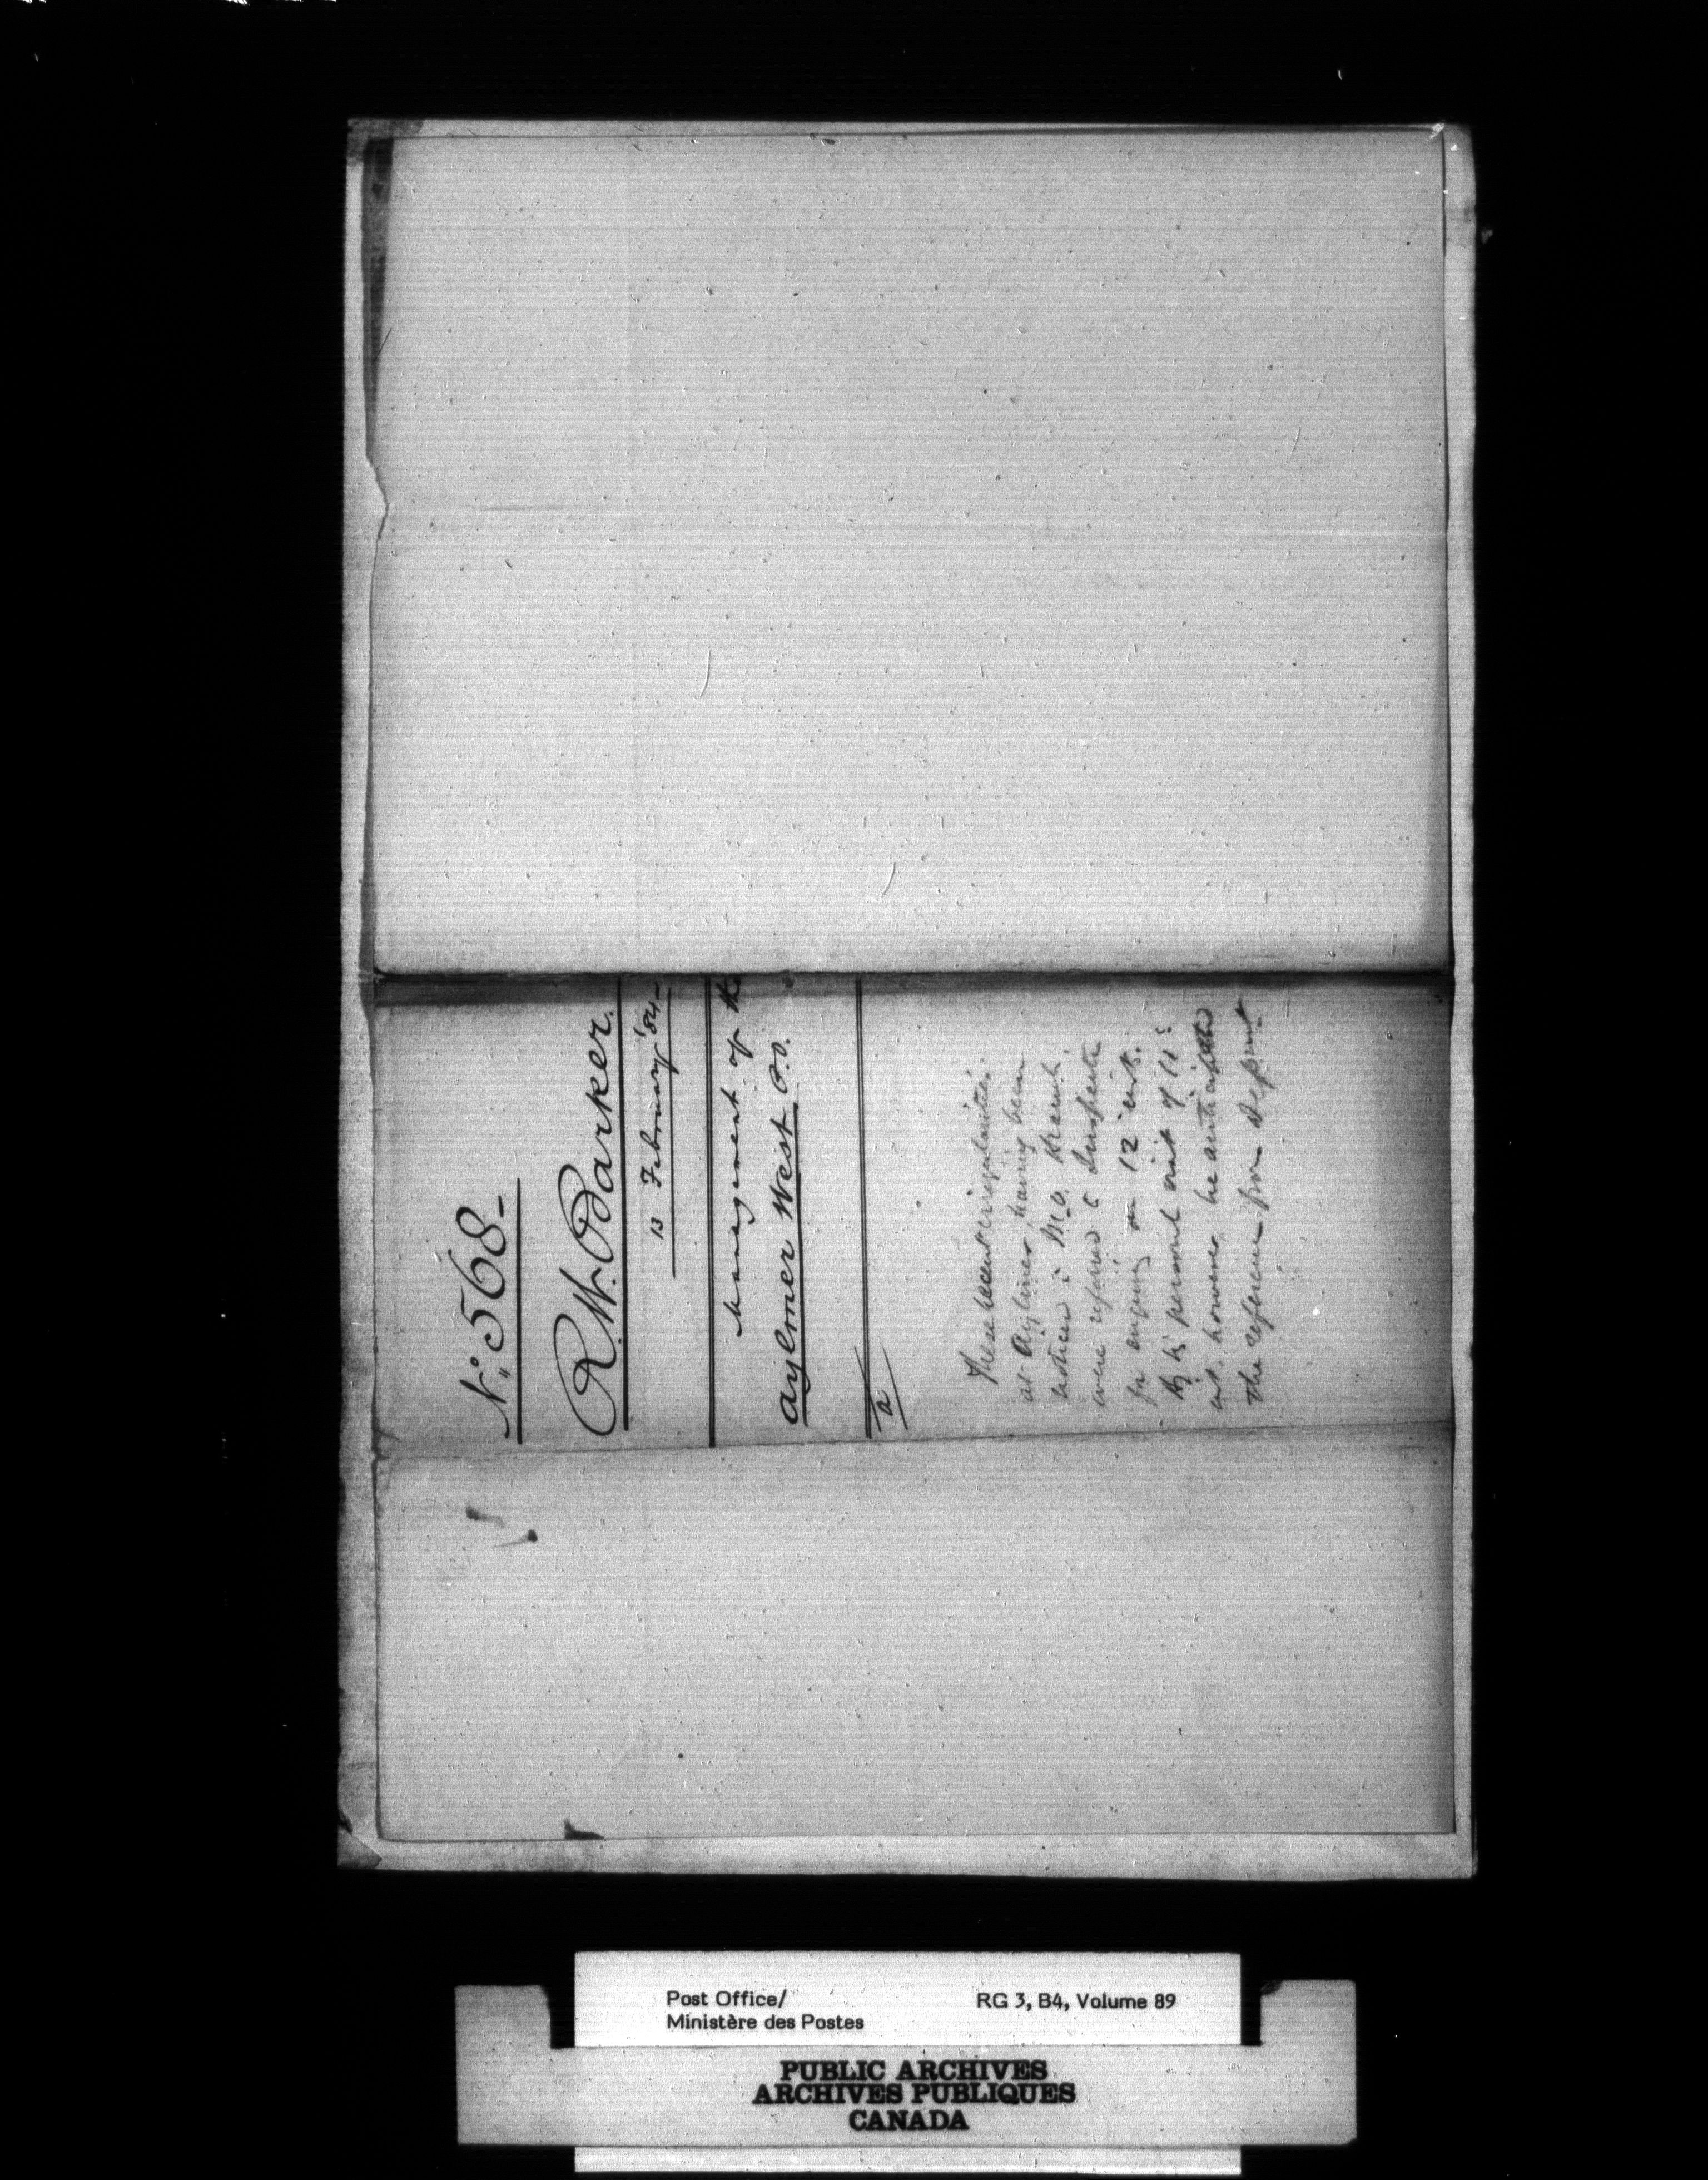 No. 568-
R. W. Parker.
13 February '84-
Management of the
Aylmer West P.O.
a
These recent irregularities
at Aylmer, having been
noticed in M.O. Branch,
were referred to Inspector
for enquiry on 12 inst.
By his personal visit of 11th
inst. however he anticipated
the reference from Depmt
Post Office/
Ministère des Postes
RG 3, B4, Volume 89
PUBLIC ARCHIVES
ARCHIVES PUBLIQUES
CANADA